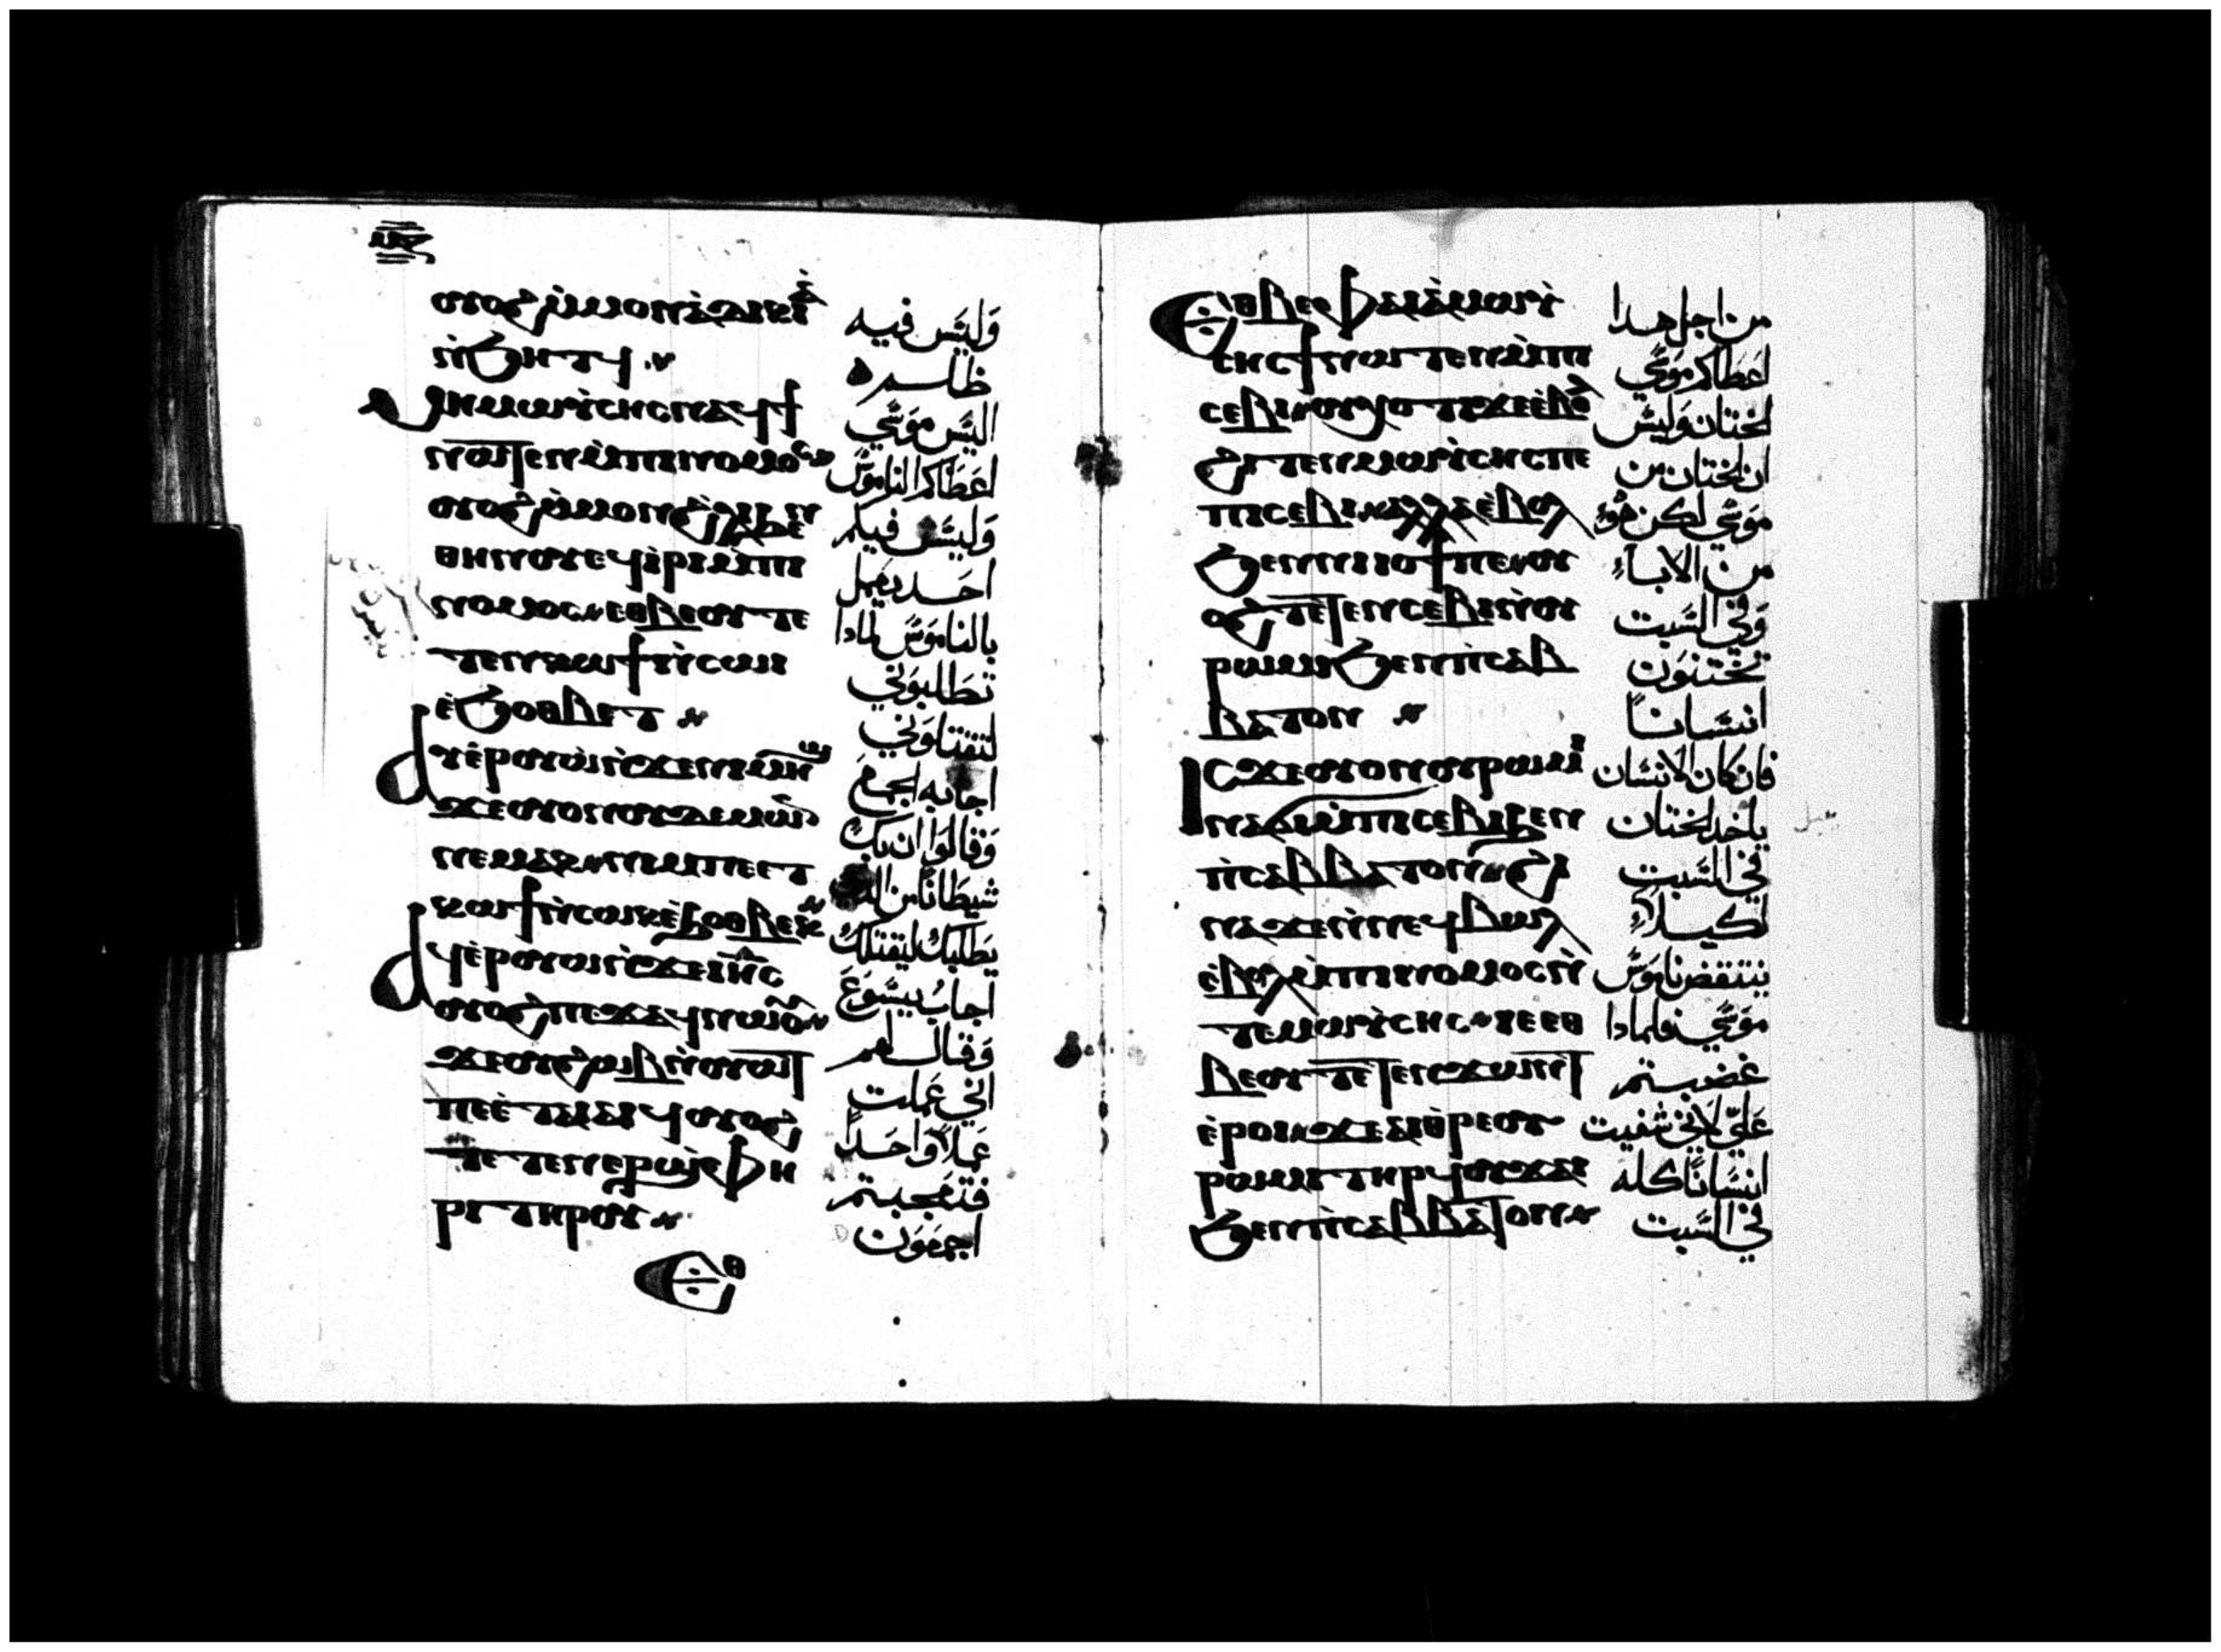 ⲟⲩⲟϩ ⲙ̀ⲙⲟⲛ ⲁ̀ⲇⲓⲕⲓⲁ̀
ⲛ̀ϧⲏⲧϥ
ⲙⲏ ⲙⲱⲩ̀ⲥⲏⲥ ⲛⲁϥϯ
ⲛⲱⲧⲉⲛ ⲙ̀ⲡⲓⲛⲟⲙⲟⲥ
ⲟⲩⲟϩ ⲙ̀ⲙⲟⲛ ϩ̀ⲗⲓ ⲛ
ⲑⲏⲛⲟⲩ ⲉϥⲓ̀ⲣⲓ ⲙ̀ⲡⲓ
ⲛⲟⲙⲟⲥ ⲉⲑⲃⲉⲟⲩ ⲧⲉ
ⲧⲉⲛⲕⲱϯ ⲛ̀ⲥⲱⲓ
ⲉ̀ϧⲟⲑⲃⲉⲧ
ⲁⲩⲉ̀ⲣⲟⲩⲱ̀ ⲛ̀ϫⲉⲛⲓⲙⲏϣ
ϫⲉ ⲟⲩⲟⲛ ⲟⲩⲇⲉⲙⲱⲛ
ⲛⲉⲙⲁⲕ ⲛⲓⲙ ⲡⲉⲧ
ⲕⲱϯ ⲛ̀ⲥⲱⲕ ⲉ̀ϧⲟⲑⲃⲉⲕ
ⲁϥⲉ̀ⲣⲟⲩⲱ̀ ⲛ̀ϫⲉⲓⲏⲥ
ⲟⲩⲟϩ ⲡⲉϫⲁϥ ⲛⲱⲟⲩ
ϫⲉ ⲟⲩϩⲱⲃ ⲛ̀ⲟⲩⲱⲧ
ⲡⲉ ⲉ̀ⲧⲁⲓⲁⲓϥ ⲟⲩⲟϩ
ⲧⲉⲧⲉⲛⲉⲣϣⲫⲏ
ⲣⲓ ⲧⲏⲣⲟⲩ
ⲉⲑ
وَليَس فيه
ظلم
اليَس موَسَي
اعَطَاكم الناموَسَ
وَليَسَ فيكم
احَد يَعَمل
بالناموَسَ لماذا
تَطَلبوَني
لتقتلوَني
اجابه الجمعَ
وَقالوَا ان بك
شيطَاناً من الذي
يَطَلبك ليقتلك
اجابُ يسَوَعَ
وَقال لهم
اني عَملت
عَملاً وَاحَداً
فتعَجبتم
اجمعَوَن
ⲉⲑⲃⲉ ⲫⲁⲓ ⲁ̀ ⲙⲱⲩ̀
ⲥⲏⲥ ϯ ⲛⲱⲧⲉⲛ ⲙ̀ⲡⲓ
ⲥⲉⲃⲓ ⲟⲩⲭⲟⲧⲓ ϫⲉ ⲉ̀ⲃⲟⲗ
ϩⲓⲧⲉⲛ ⲙⲱⲩ̀ⲥⲏⲥ ⲡⲉ
ⲡⲓⲥⲉⲃⲓ ⲁⲗⲗⲁ ⲉ̀ⲃⲟⲗ
ϧⲉⲛ ⲛⲓⲓⲟϯ ⲡⲉ ⲟⲩ
ⲟϩ ⲧⲉⲧⲉⲛⲥⲉⲃⲓ ⲛ̀ⲟⲩ
ⲣⲱⲙⲓ ϧⲉⲛ ⲡ̀ⲥⲁⲃ
ⲃⲁⲧⲟⲛ
ⲓⲥϫⲉ ⲟⲩⲟⲛ ⲟⲩⲣⲱⲙⲓ
ⲛⲁϭⲓ ⲙ̀ⲡⲓⲥⲉⲃⲓ ϧⲉⲛ
ⲡ̀ⲥⲁⲃⲃⲁⲧⲟⲛ ϩⲓ
ⲛⲁ ϫⲉ ⲛ̀ⲛⲉϥⲃⲱⲗ
ⲉ̀ⲃⲟⲗ ⲙ̀ⲡⲓⲛⲟⲙⲟⲥ ⲛ̀
ⲧⲉ ⲙⲱⲩ̀ⲥⲏⲥ ⲓⲉ ⲉⲑ
ⲃⲉⲟⲩ ⲧⲉⲧⲉⲛϫⲱⲛⲧ
ⲉ̀ⲣⲟⲓ ϫⲉ ⲁⲓⲑ̀ⲣⲉ ⲟⲩ
ⲣⲱⲙⲓ ⲧⲏⲣϥ ⲟⲩϫⲁⲓ
ϧⲉⲛ ⲡ̀ⲥⲁⲃⲃⲁⲧⲟⲛ
من اجل هدا
اعَطَاكم موَسَي
لختان وَليسَ
ان لختان من
موَسَي لكن هوَ
من الاباءِ
وَفي السَبت
تختنوَن
انسَاناً
فان كان الانسَان
ياخد لختان
في السَبت
لكيلاءِ
ينتقض ناموَسَ
موَسَي فلمادا
غضبتم
عَليّ لاني شفيت
انسَاناً كله
في السَبت